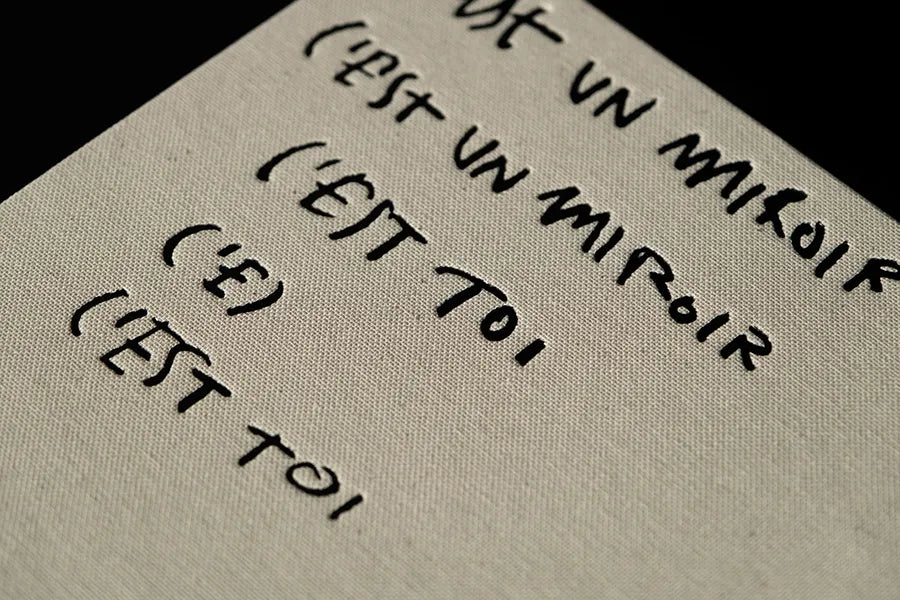 EST UN MIROIR
C'EST UN MIROIR
C'EST TOI
C'E)
C'EST TOI